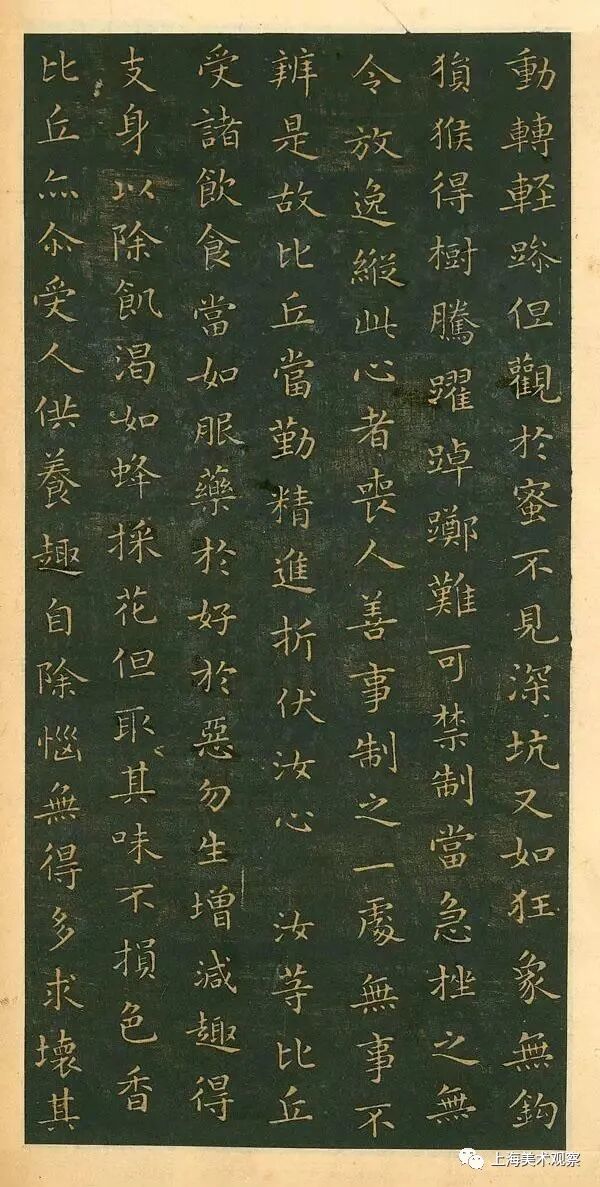 動轉輕躁但觀於蜜不見深坑又如狂象無鈎
猨猴得樹騰躍踔躑難可禁制當急挫之無
令放逸縱此心者喪人善事制之一處無事不
辨是故比丘當勤精進折伏汝心 汝等比丘
受諸飲食當如服藥於好於惡勿生增減趣得
支身以除飢渴如蜂採花但取其味不損色香
比丘亦尒受人供養趣自除惱無得多求壞其
上海美术观察